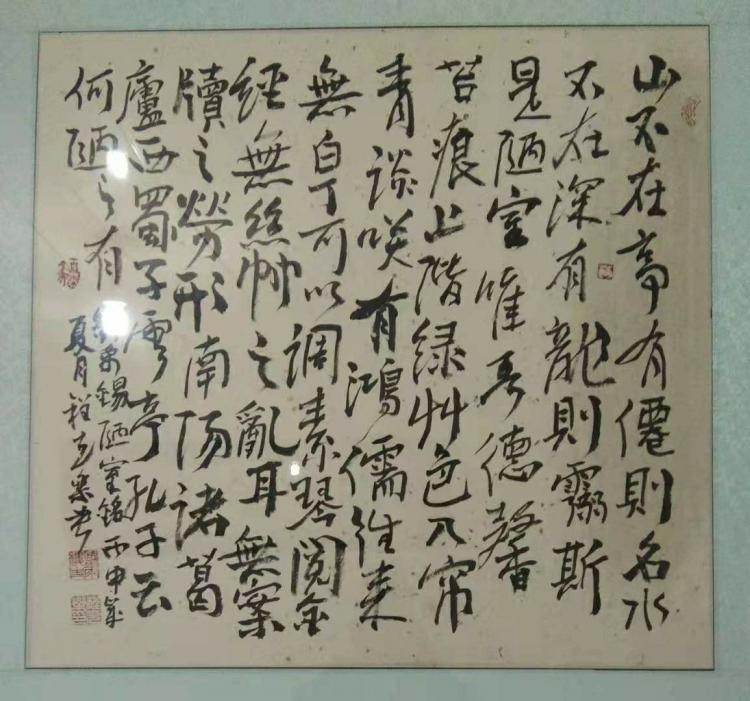 山不在高有僊則名水
不在深有龍則靈斯
是陋室惟吾德馨
苔痕上階緑艸色入帘
青談咲有鴻儒往来
無白丁可以調素琴閲金
經無絲竹之亂耳無案
牘之勞形南陽諸葛
廬西蜀子雲亭孔子云
何陋之有
劉禹錫陋室銘丙申歲
夏月程書